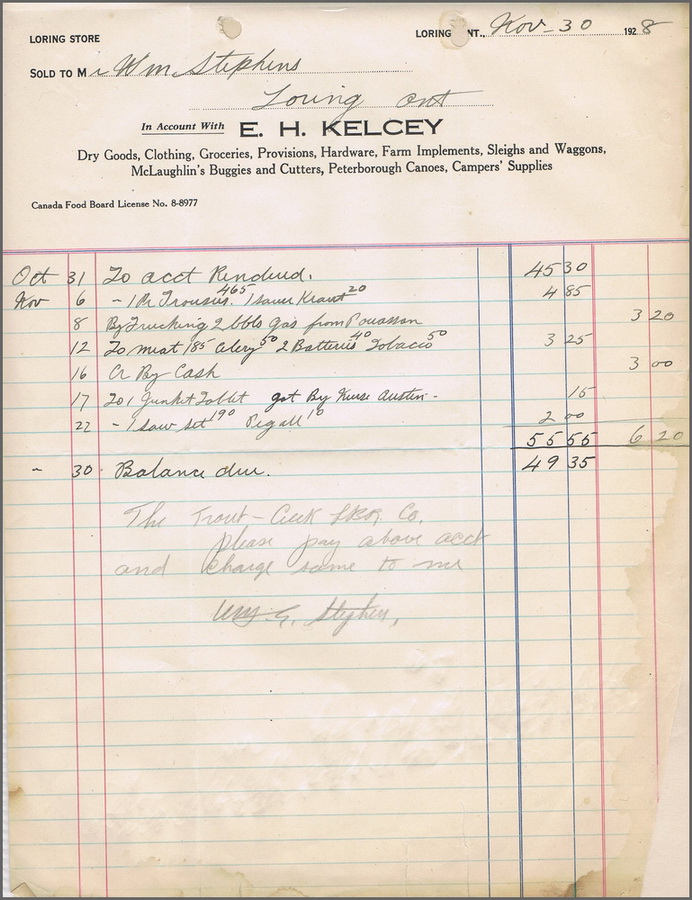 LORING STORE
LORING NT., Nov - 30 1928
SOLD TO Mr Wm Stephens
Loring Ont
In Account With E. H. KELCEY
Dry Goods, Clothing, Groceries, Provisions, Hardware, Farm Implements, Sleighs and Waggons,
McLaughlin's Buggies and Cutters, Peterborough Canoes, Campers' Supplies
Canada Food Board License No. 8-8977
Oct 31 To acct Rendered. 45 30
Nov 6 - 1 Pr Trousers 465 1 Sauer Kraut 20 4 85
8 By Trucking 2 bbls Gas from 3 20
12 To meat 185 Celery 50 2 Batteries 40 Tobacco 50 3 25
16 Cr By Cash 3 00
17 To 1 Junket Tablet got By Austin - 15
22 - 1 saw set 190 10 2 00
55 55 6 20
- 30 Balance due. 49 35
The Trout - Creek Co.
please pay above acct
and charge same to me
Wm Stephens,